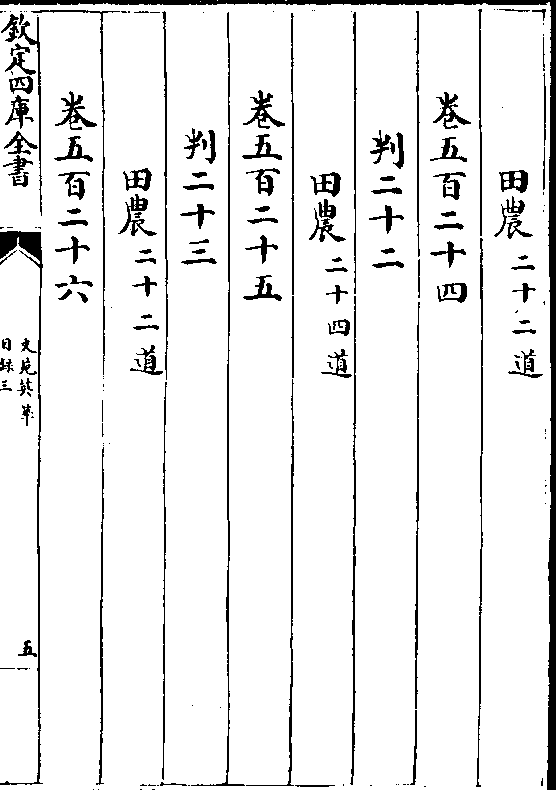 田農二十二道
卷五百二十四
判二十二
田農二十四道
卷五百二十五
判二十三
田農二十二道
卷五百二十六
欽定四庫全書
文苑英華
目録三
五